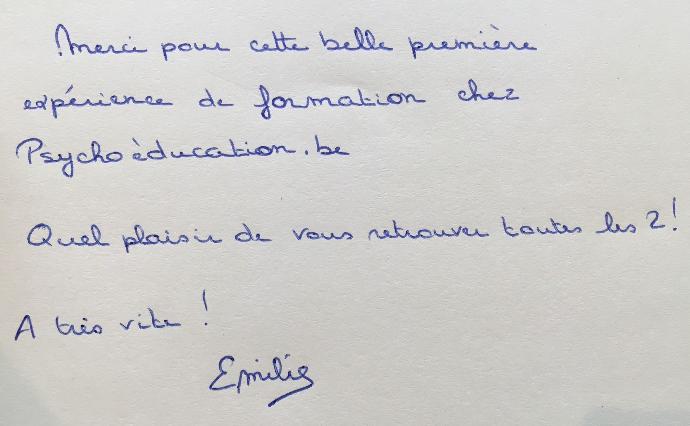 Merci pour cette belle première
expérience de formation chez
Psychoèducation.be
Quel plaisir de vous retrouver toutes les 2!
A très vite !
Emilie